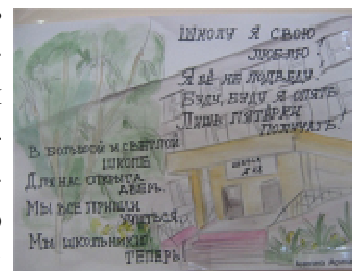 Школу я свою
люблю!
Я её не подведу.
Буду, буду я опять
Лишь пятёрки
получать.
В большой и светлой
школе
Для нас открыта
дверь.
Мы все пришли
учиться,
Мы школьники
теперь!
школа